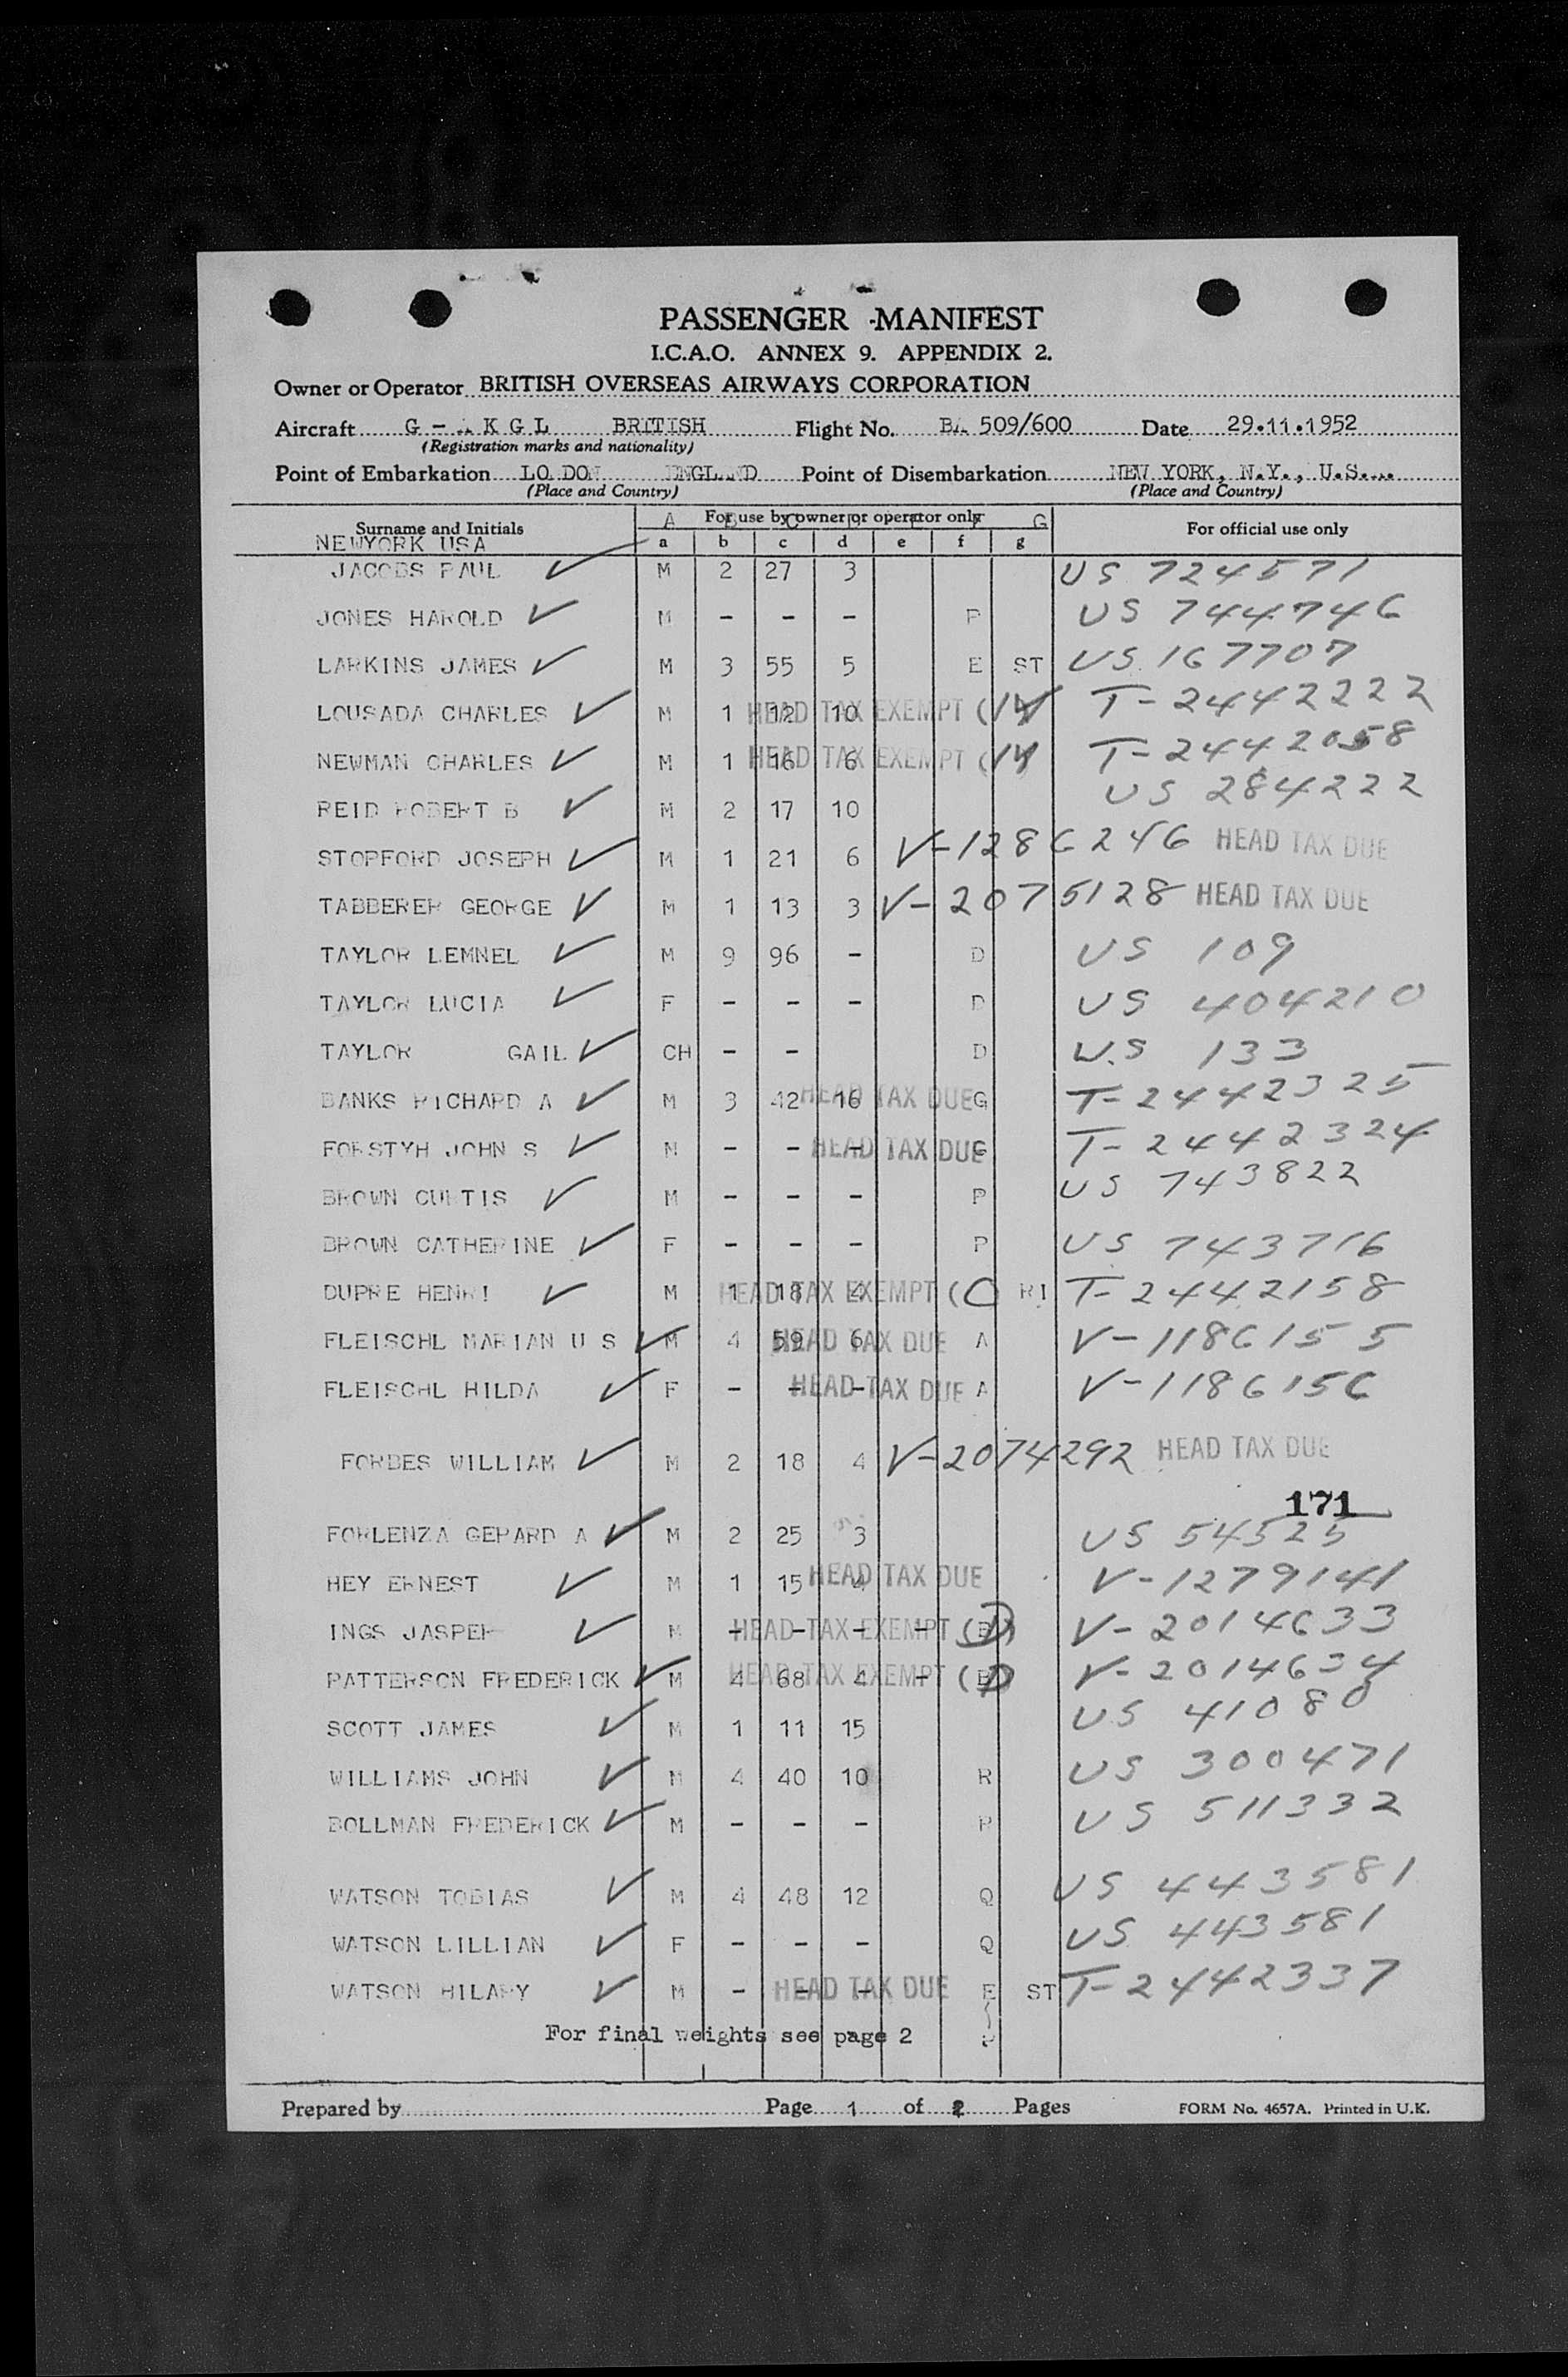 PASSENGER -MANIFEST
I.C.A.O. ANNEX 9. APPENDIX 2.
Owner or Operator BRITISH OVERSEAS AIRWAYS CORPORATION
Aircraft G - A K G L BRITISH Flight No. BA 509/600 Date 29.11.1952
(Registration marks and nationality)
Point of Embarkation LO DON ENGLAND Point of Disembarkation NEW YORK, N.Y., U.S.A.
(Place and Country) (Place and Country)
Surname and Initials For use by owner or operator only For official use only
A B C D E F G
NEWYORK USA a b c d e f g
JACOBS PAUL ✓ M 2 27 3 US 724571
JONES HAROLD ✓ M - - - P US 744746
LARKINS JAMES ✓ M 3 55 5 E ST US 167707
LOUSADA CHARLES ✓ M 1 12 10 HEAD TAX EXEMPT ( T-2442222
NEWMAN CHARLES ✓ M 1 16 6 HEAD TAX EXEMPT ( T-2442058
REID ROBERT B ✓ M 2 17 10 US 284222
STOPFORD JOSEPH ✓ M 1 21 6 V-1286246 HEAD TAX DUE
TABBERER GEORGE ✓ M 1 13 3 V-2075128 HEAD TAX DUE
TAYLOR LEMNEL ✓ M 9 96 - D US 109
TAYLOR LUCIA ✓ F - - - D US 404210
TAYLOR GAIL ✓ CH - - D U.S 133
BANKS RICHARD A ✓ M 3 42 16 HEAD TAX DUE G T-2442325
FORSTYH JOHN S ✓ M - - - HEAD TAX DUE G T-2442324
BROWN CURTIS ✓ M - - - P US 743822
BROWN CATHERINE ✓ F - - - P US 743716
DUPRE HENRI ✓ M 1 18 4 HEAD TAX EXEMPT (C RI T-2442158
FLEISCHL MARIAN U S ✓ M 4 59 6 HEAD TAX DUE A V-1186155
FLEISCHL HILDA ✓ F - - - HEAD TAX DUE A V-1186156
FORBES WILLIAM ✓ M 2 18 4 V-2074292 HEAD TAX DUE
171
FORLENZA GERARD A ✓ M 2 25 3 US 54525
HEY ERNEST ✓ M 1 15 4 HEAD TAX DUE V-1279141
INGS JASPER ✓ M - - - - HEAD TAX EXEMPT (D) V-2014633
PATTERSON FREDERICK ✓ M 4 68 4 - HEAD TAX EXEMPT (D V-2014634
SCOTT JAMES ✓ M 1 11 15 US 41080
WILLIAMS JOHN ✓ M 4 40 10 R US 300471
BOLLMAN FREDERICK ✓ M - - - R US 511332
WATSON TOBIAS ✓ M 4 48 12 Q US 443581
WATSON LILLIAN ✓ F - - - Q US 443581
WATSON HILARY ✓ M - - - HEAD TAX DUE E ST T-2442337
For final weights see page 2
Prepared by Page 1 of 2 Pages FORM No. 4657A. Printed in U.K.